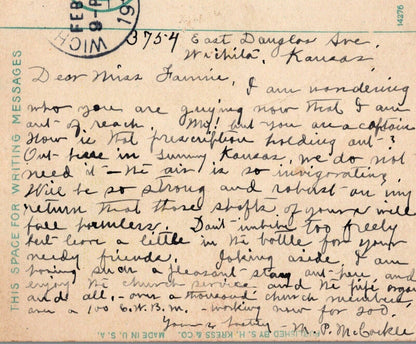 WICH
FEB
9-P
19
14276
3754 East Douglas Ave.
Wichita, Kansas.
Dear Miss Fannie, I am wondering
who you are guying now that I am
out of reach. My! but you are a captain
How is that prescription holding out?
Out here in sunny Kansas, we do not
need it - the air is so invigorating
Will be so strong and robust on my
return that those shafts of yours will
fall powerless. Don't imbibe too freely
but leave a little in the bottle for your
needy friends. Joking aside, I am
having such a pleasant stay out here, and
enjoy the church service, and the pipe organ
and all, - over a thousand church members,
over a 100 C.W.B.M. - working now for 200,
Yours hastily - M. P. McCorkle
THIS SPACE FOR WRITING MESSAGES
PUBLISHED BY S. H. KRESS & CO.
MADE IN U.S.A.